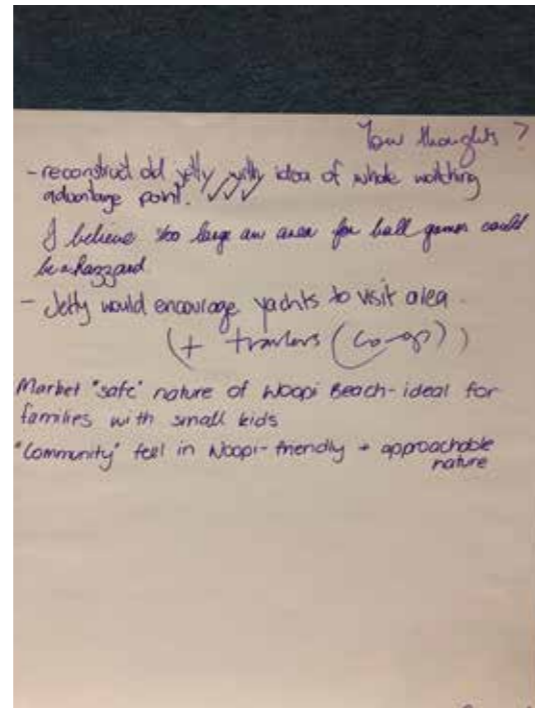 Your thoughts ?
- reconstruct old jetty with idea of whale watching
advantage point. ✓✓✓
I believe too large an area for ball games could
be a hazzard
- Jetty would encourage yachts to visit area.
(+ trawlers (co-op))
Market "safe" nature of Woopi Beach - ideal for
families with small kids
"Community" feel in Woopi - friendly + approachable
nature